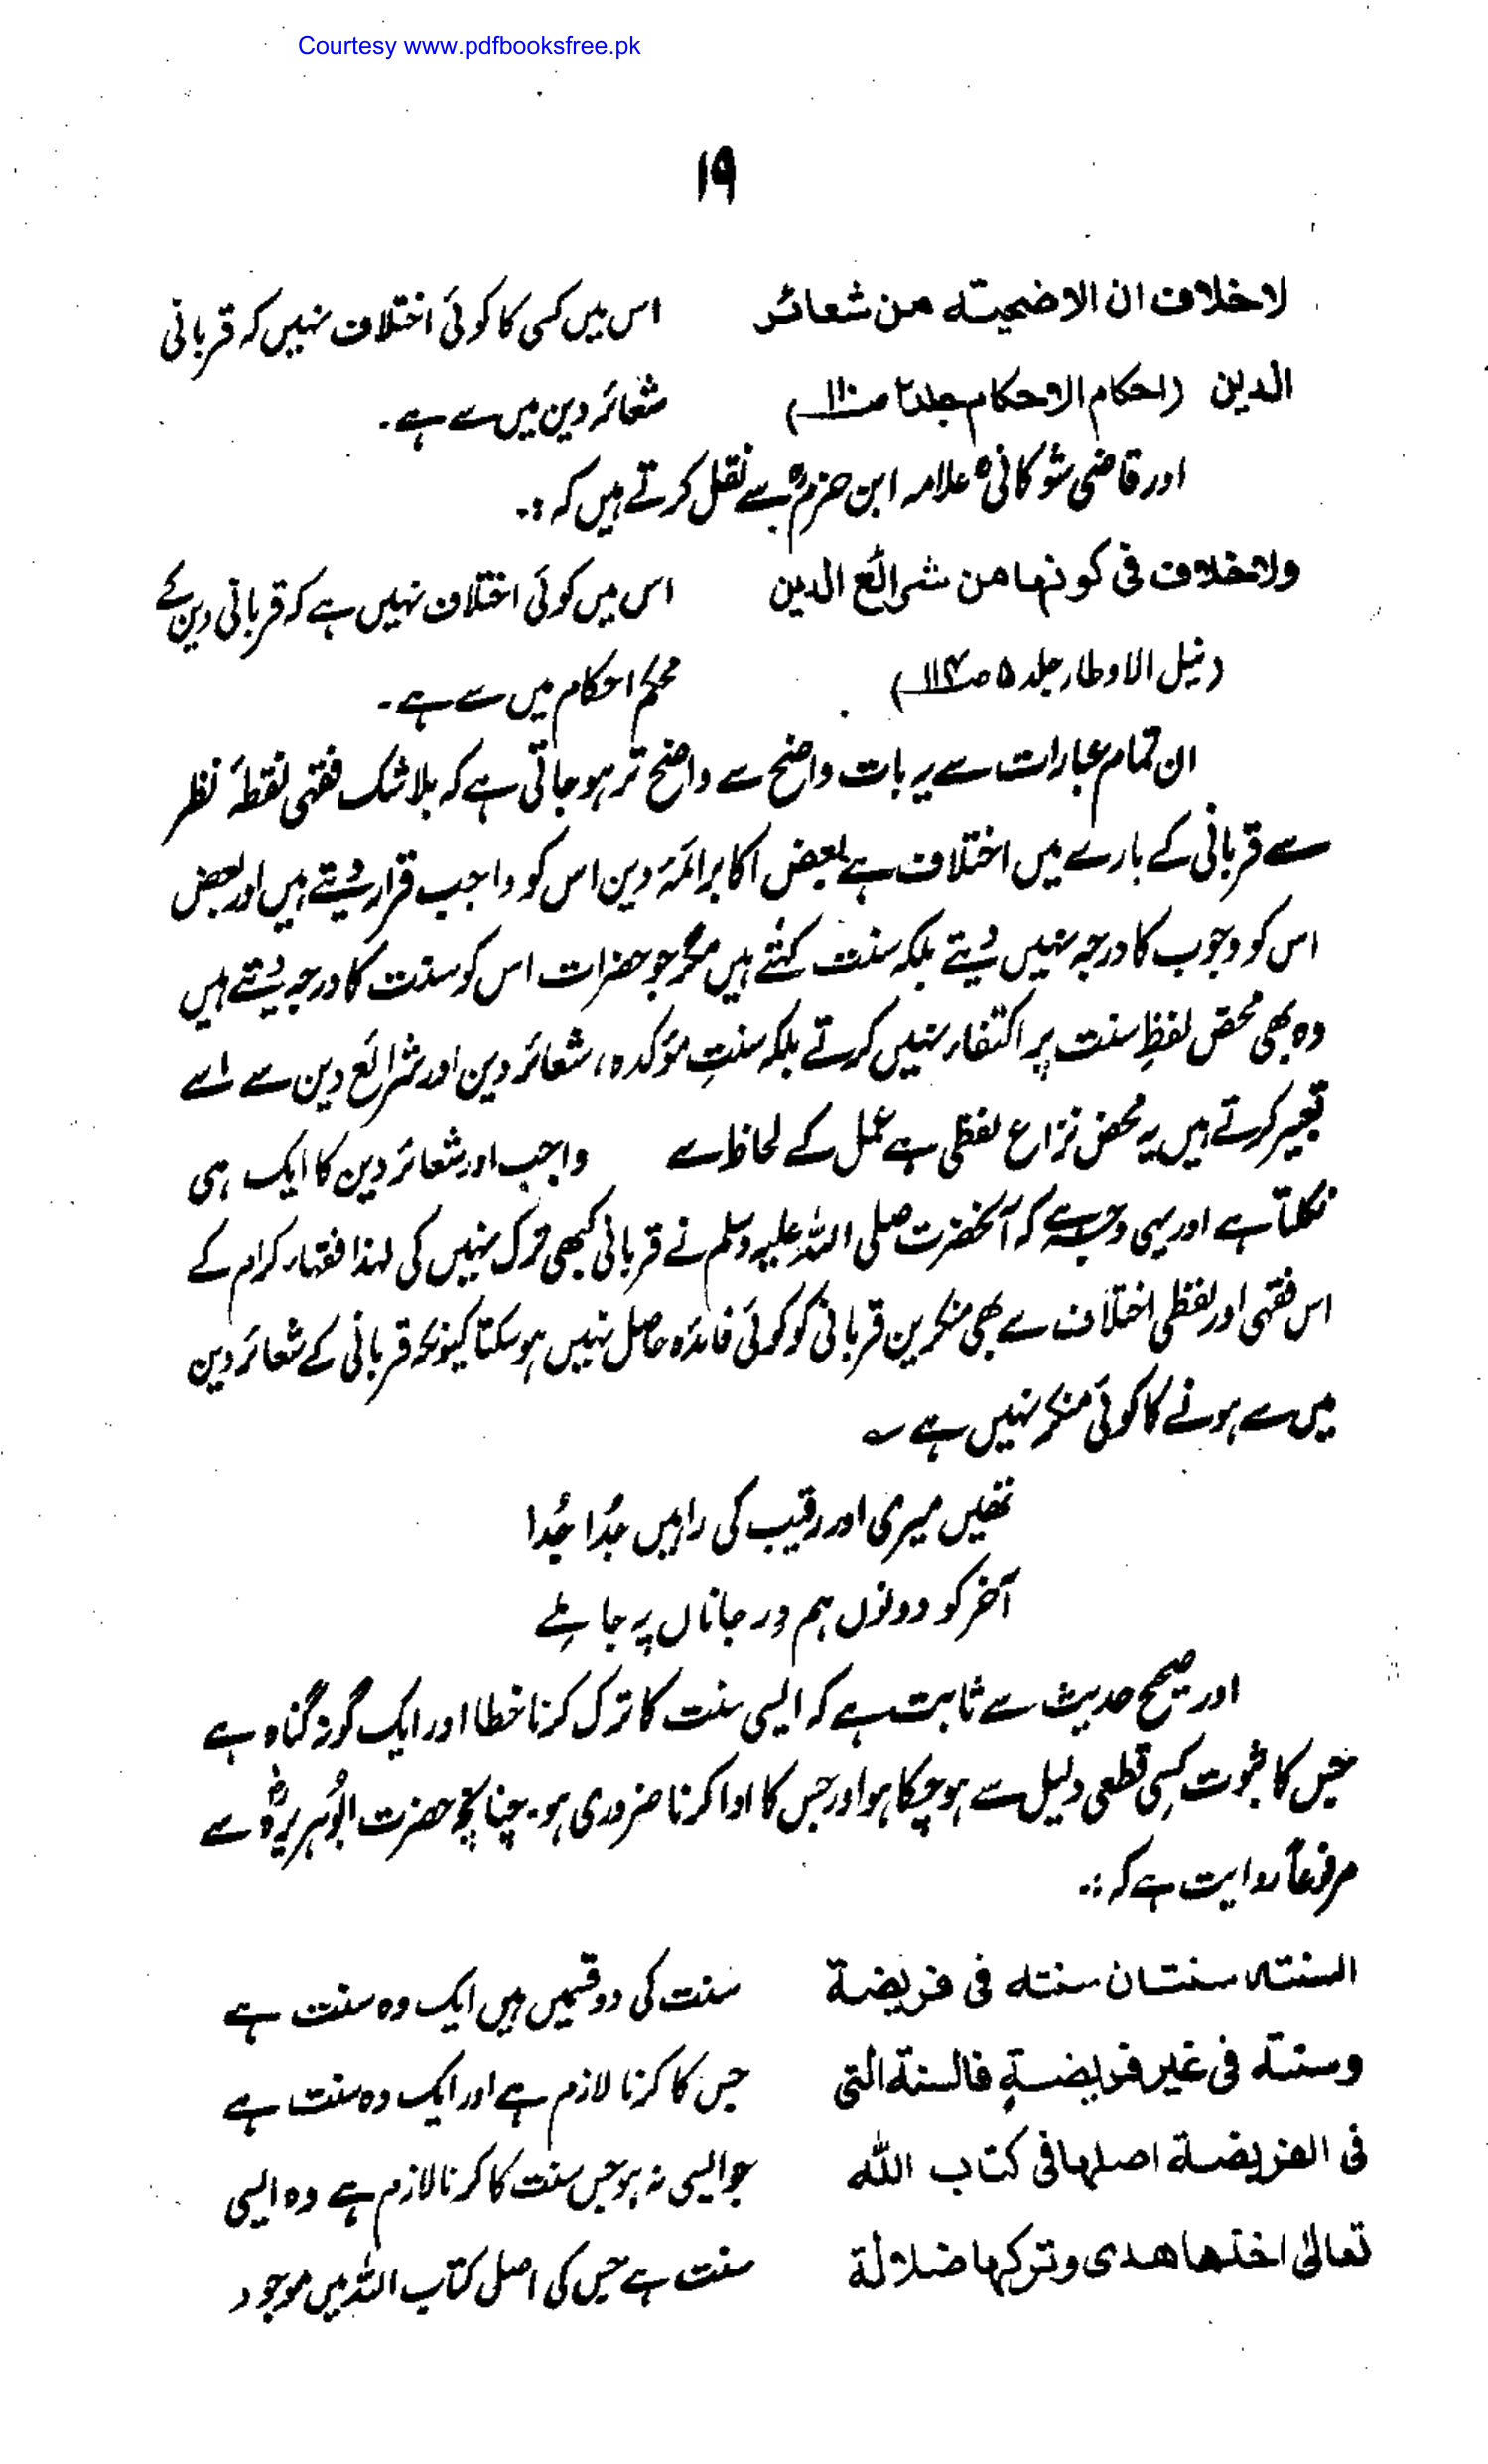 Courtesy www.pdfbooksfree.pk
۱۹
لاخلاف ان الاضحیتہ من شعائر اس میں کسی کا کوئی اختلاف نہیں کہ قربانی
الدین (احکام الاحکام جلد۲ صـ۱۱۰) شعائر دین میں سے ہے۔
اور قاضی شوکانیؒ علامہ ابن حزمؒ سے نقل کرتے ہیں کہ :۔
ولاخلاف فی کونھا من شرائع الدین اس میں کوئی اختلاف نہیں ہے کہ قربانی دین کے
(نیل الاوطار جلد ۵ صـ۱۱۴) محکم احکام میں سے ہے۔
ان تمام عبارات سے یہ بات واضح سے واضح تر ہو جاتی ہے کہ بلا شک فقہی نقطۂ نظر
سے قربانی کے بارے میں اختلاف ہے بعض اکابر ائمۂ دین اس کو واجب قرار دیتے ہیں اور بعض
اس کو وجوب کا درجہ نہیں دیتے بلکہ سنت کہتے ہیں مگر جو حضرات اس کو سنت کا درجہ دیتے ہیں
وہ بھی محض لفظِ سنت پر اکتفاء نہیں کرتے بلکہ سنتِ مؤکدہ، شعائر دین اور شرائع دین سے اسے
تعبیر کرتے ہیں یہ محض نزاع لفظی ہے عمل کے لحاظ سے واجب اور شعائر دین کا ایک ہی
نکلتا ہے اور یہی وجہ ہے کہ آنحضرت صلی اللہ علیہ وسلم نے قربانی کبھی ترک نہیں کی لہذا فقہاء کرام کے
اس فقہی اور لفظی اختلاف سے بھی منکرین قربانی کو کوئی فائدہ حاصل نہیں ہو سکتا کیونکہ قربانی کے شعائر دین
میں سے ہونے کا کوئی منکر نہیں ہے ؎
تھیں میری اور رقیب کی راہیں جُدا جُدا
آخر کو دونوں ہم در جاناں پہ جا ملے
اور صحیح حدیث سے ثابت ہے کہ ایسی سنت کا ترک کرنا خطا اور ایک گونہ گناہ ہے
جس کا ثبوت کسی قطعی دلیل سے ہو چکا ہو اور جس کا ادا کرنا ضروری ہو۔ چنانچہ حضرت ابوہریرہؓ سے
مرفوعاً روایت ہے کہ :۔
السنتہ سنتان سنتہ فی فریضة سنت کی دو قسمیں ہیں ایک وہ سنت ہے
وسنتہ فی غیر فریضةٍ فالسنة التی جس کا کرنا لازم ہے اور ایک وہ سنت ہے
فی الفریضة اصلھا فی کتاب اللہ جو ایسی نہ ہو جس سنت کا کرنا لازم ہے وہ ایسی
تعالیٰ اخذھا ھدی وترکھا ضلالة سنت ہے جس کی اصل کتاب اللہ میں موجود